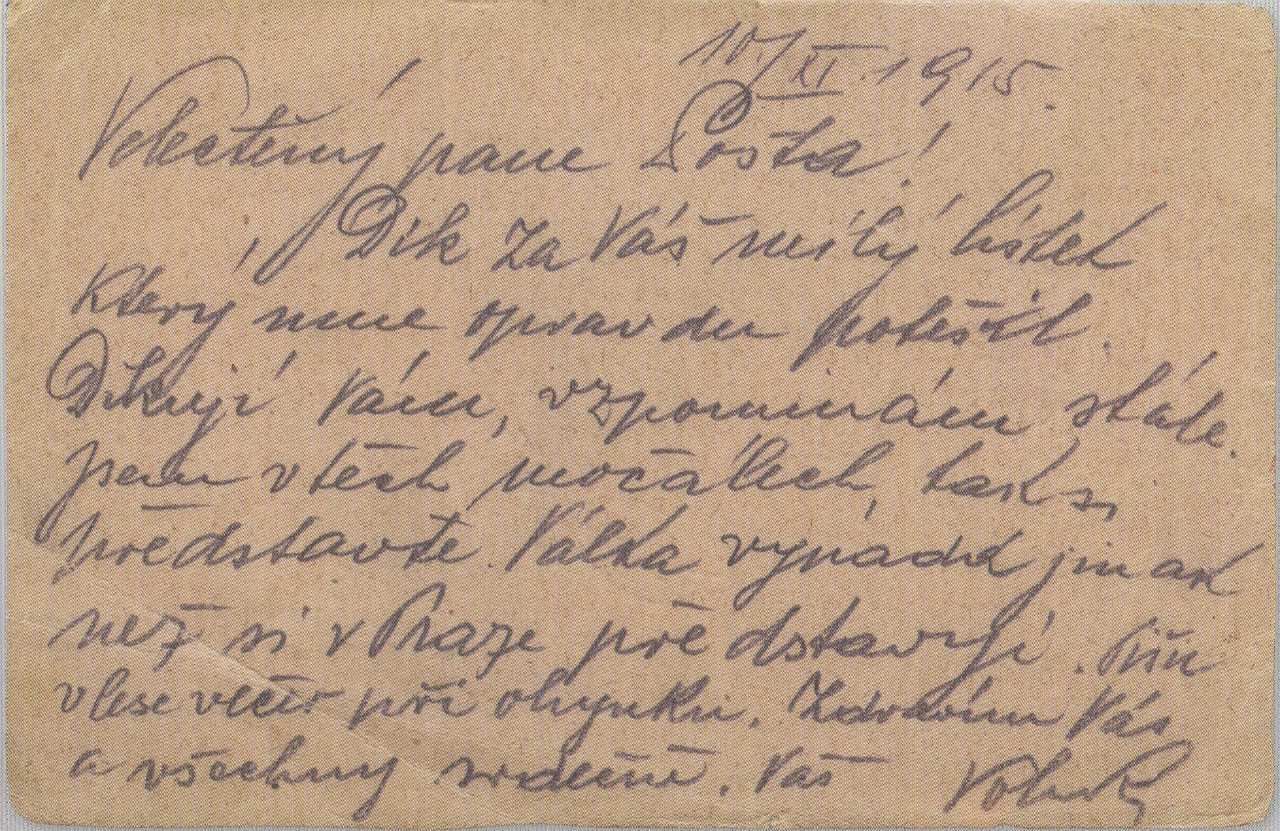 10./XI. 1915.
Velectěný pane Pošta!
Dík za Váš milý lístek
který mne opravdu potěšil.
Děkuji Vám, vzpomínám stále.
jsem v těch močálech, tak si
představte. Válka vypadá jinak
než si v Praze představují. Píšu
v lese večer při ohýnku. Zdravím Vás
a všechny srdečně. Váš